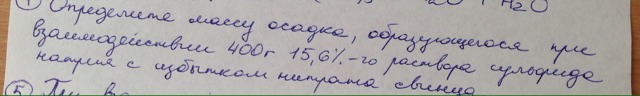 2O + H2O
① Определите массу осадка, образующегося при
взаимодействии 400г 15,6%-го раствора сульфида
натрия с избытком нитрата свинца
⑤ При